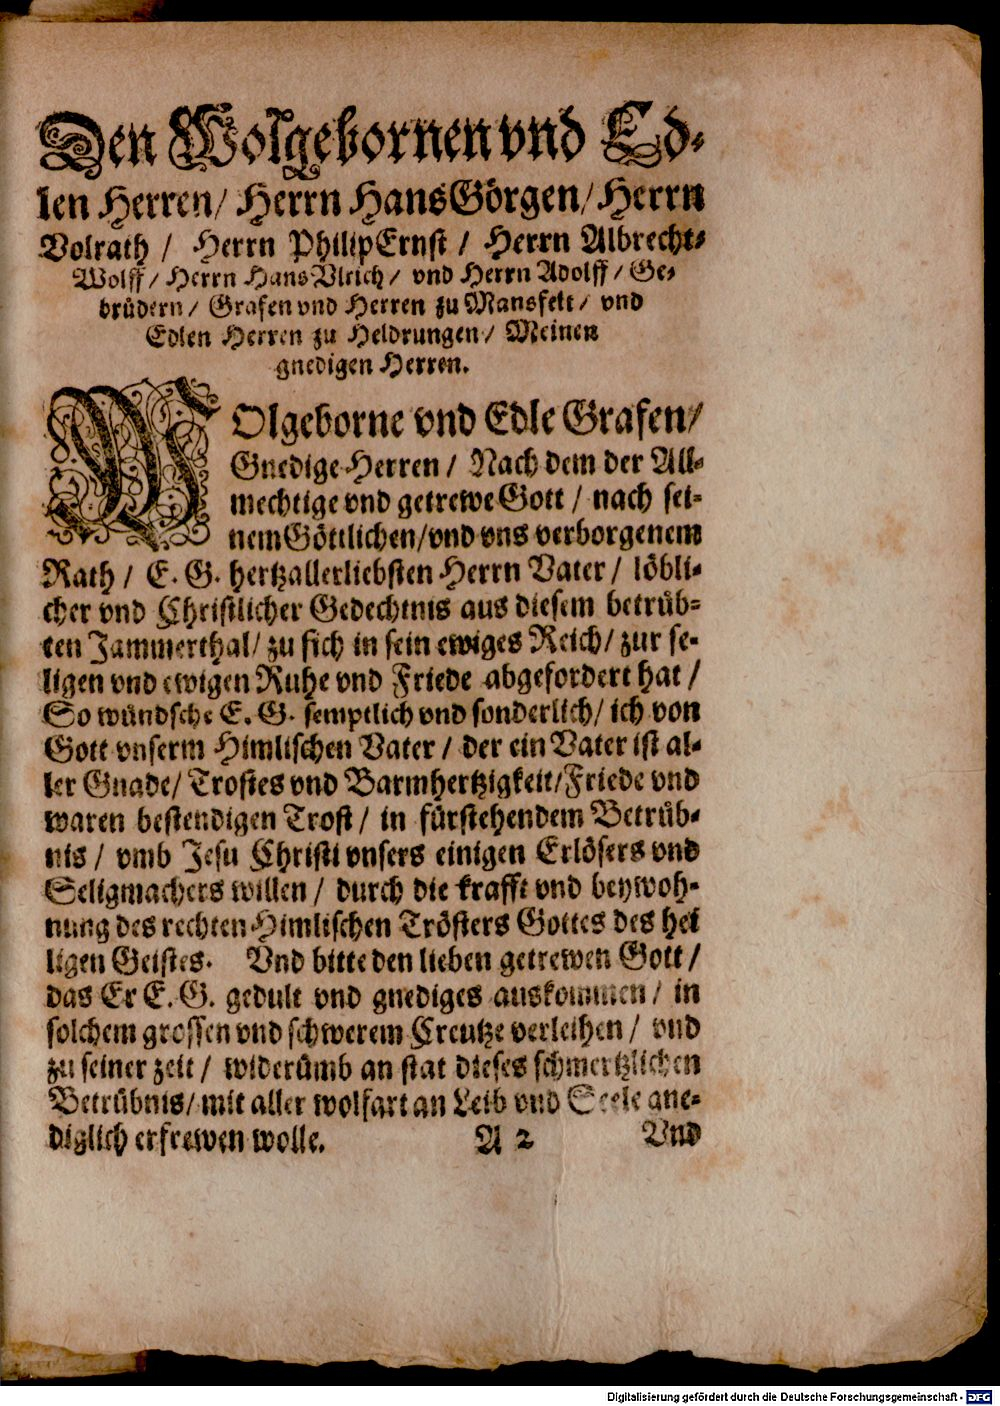 Den Wolgebornen vnd Ed-
len Herren/ Herrn Hans Görgen/ Herrn
Volrath / Herrn Philip Ernst / Herrn Albrecht-
Wolff / Herrn Hans Vlrich / vnd Herrn Adolff / Ge-
brüdern / Grafen vnd Herren zu Mansfelt / vnd
Edlen Herren zu Heldrungen / Meinen
gnedigen Herren.
WOlgeborne vnd Edle Grafen/
Gnedige Herren / Nach dem der All-
mechtige vnd getrewe Gott / nach sei-
nem Göttlichen/vnd vns verborgenem
Rath / E. G. hertzallerliebsten Herrn Vater / löbli-
cher vnd Christlicher Gedechtnis aus diesem betrüb-
ten Jammerthal/ zu sich in sein ewiges Reich/ zur se-
ligen vnd ewigen Ruhe vnd Friede abgefordert hat /
So wündsche E. G. semptlich vnd sonderlich/ ich von
Gott vnserm Himlischen Vater / der ein Vater ist al-
ler Gnade/ Trostes vnd Barmhertzigkeit/Friede vnd
waren bestendigen Trost / in fürstehendem Betrüb-
nis / vmb Jesu Christi vnsers einigen Erlösers vnd
Seligmachers willen / durch die krafft vnd beywoh-
nung des rechten Himlischen Trösters Gottes des hei
ligen Geistes. Vnd bitte den lieben getrewen Gott /
das Er E. G. gedult vnd gnediges auskommen / in
solchem grossen vnd schwerem Creutze verleihen / vnd
zu seiner zeit / widerümb an stat dieses schmertzlichen
Betrübnis/ mit aller wolfart an Leib vnd Seele gne-
diglich erfrewen wolle. A 2 Vnd
Digitalisierung gefördert durch die Deutsche Forschungsgemeinschaft - DFG